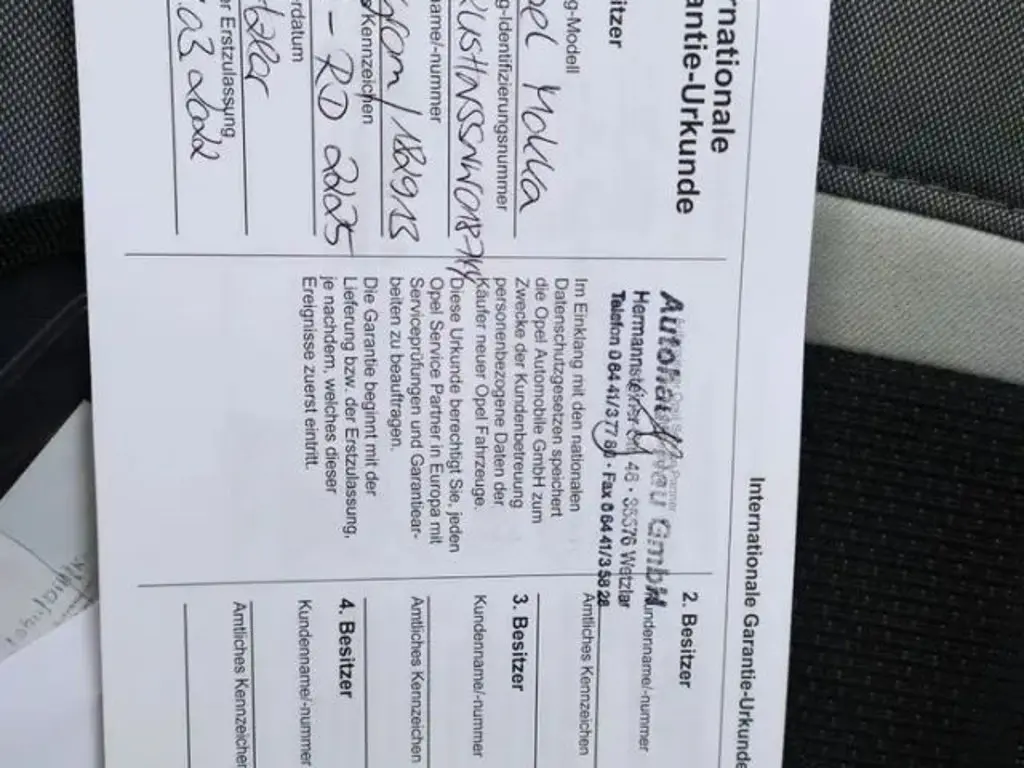 Internationale Garantie-Urkunde
rnationale
antie-Urkunde
itzer
g-Modell
pel Mokka
g-Identifizierungsnummer
name/-nummer
/182913
Kennzeichen
- RD 2225
rdatum
tzlar
r Erstzulassung
.03 2022
Autohaus Neu GmbH
Hermannsteiner Str. 46 · 35576 Wetzlar
Telefon 0 64 41/3 77 80 · Fax 0 64 41/3 58 28
Im Einklang mit den nationalen
Datenschutzgesetzen speichert
die Opel Automobile GmbH zum
Zwecke der Kundenbetreuung
personenbezogene Daten der
Käufer neuer Opel Fahrzeuge.
Diese Urkunde berechtigt Sie, jeden
Opel Service Partner in Europa mit
Serviceprüfungen und Garantiear-
beiten zu beauftragen.
Die Garantie beginnt mit der
Lieferung bzw. der Erstzulassung,
je nachdem, welches dieser
Ereignisse zuerst eintritt.
2. Besitzer
Kundenname/-nummer
Amtliches Kennzeichen
3. Besitzer
Kundenname/-nummer
Amtliches Kennzeichen
4. Besitzer
Kundenname/-nummer
Amtliches Kennzeichen